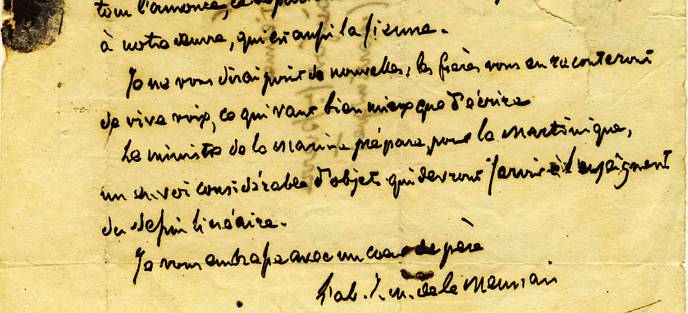 tout l'annonce,
à notre œuvre, qui est aussi la sienne.
Je ne vous dirai point de nouvelles, les frères vous en raconteront
de vive voix, ce qui vaut bien mieux que d'écrire
Le ministre de la marine prépare, pour la Martinique,
un envoi considérable d'objets qui devront servir à l'enseignent
du dessin linéaire.
Je vous embrasse avec un cœur de père
L'ab. J. M. de la Mennais